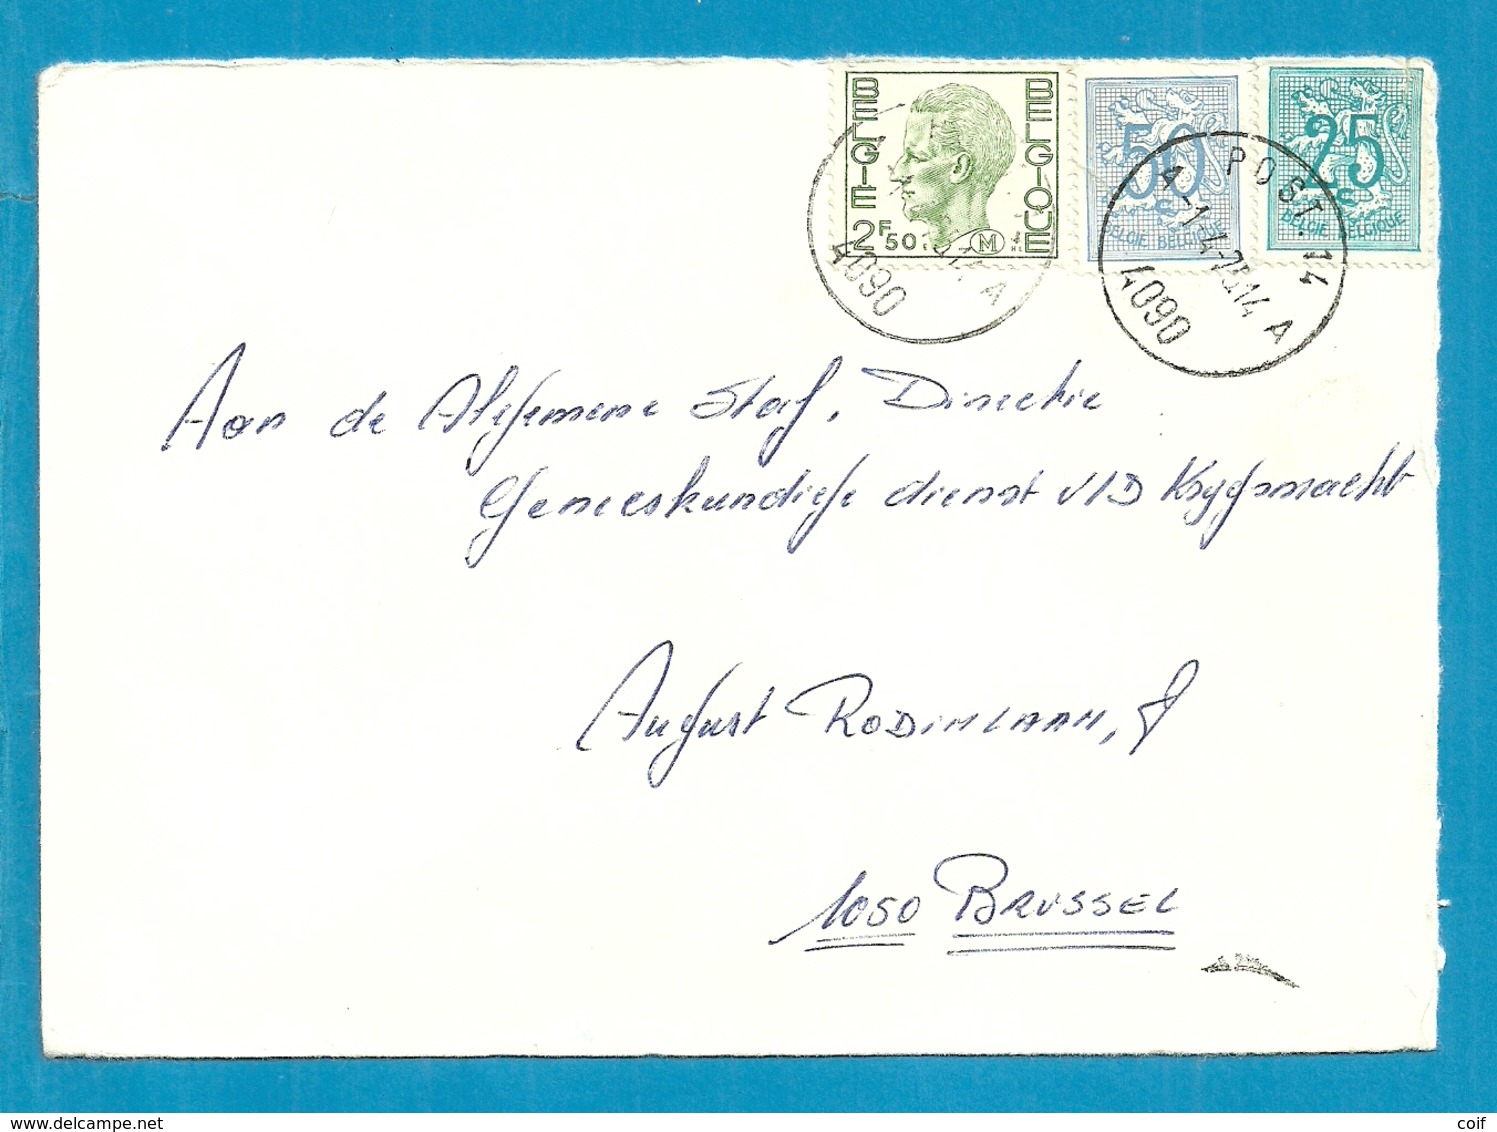 BELGIE BELGIQUE
2F50 M
50
BELGIE BELGIQUE
25
BELGIE BELGIQUE
4090 A
POST. 14
A -1-4-75 14 A
4090
Aan de Algemene Staf, Directie
Geneeskundige dienst v/D Krygsmacht
August RODINLAAN, 8
1050 BRUSSEL
delcampe.net
coif